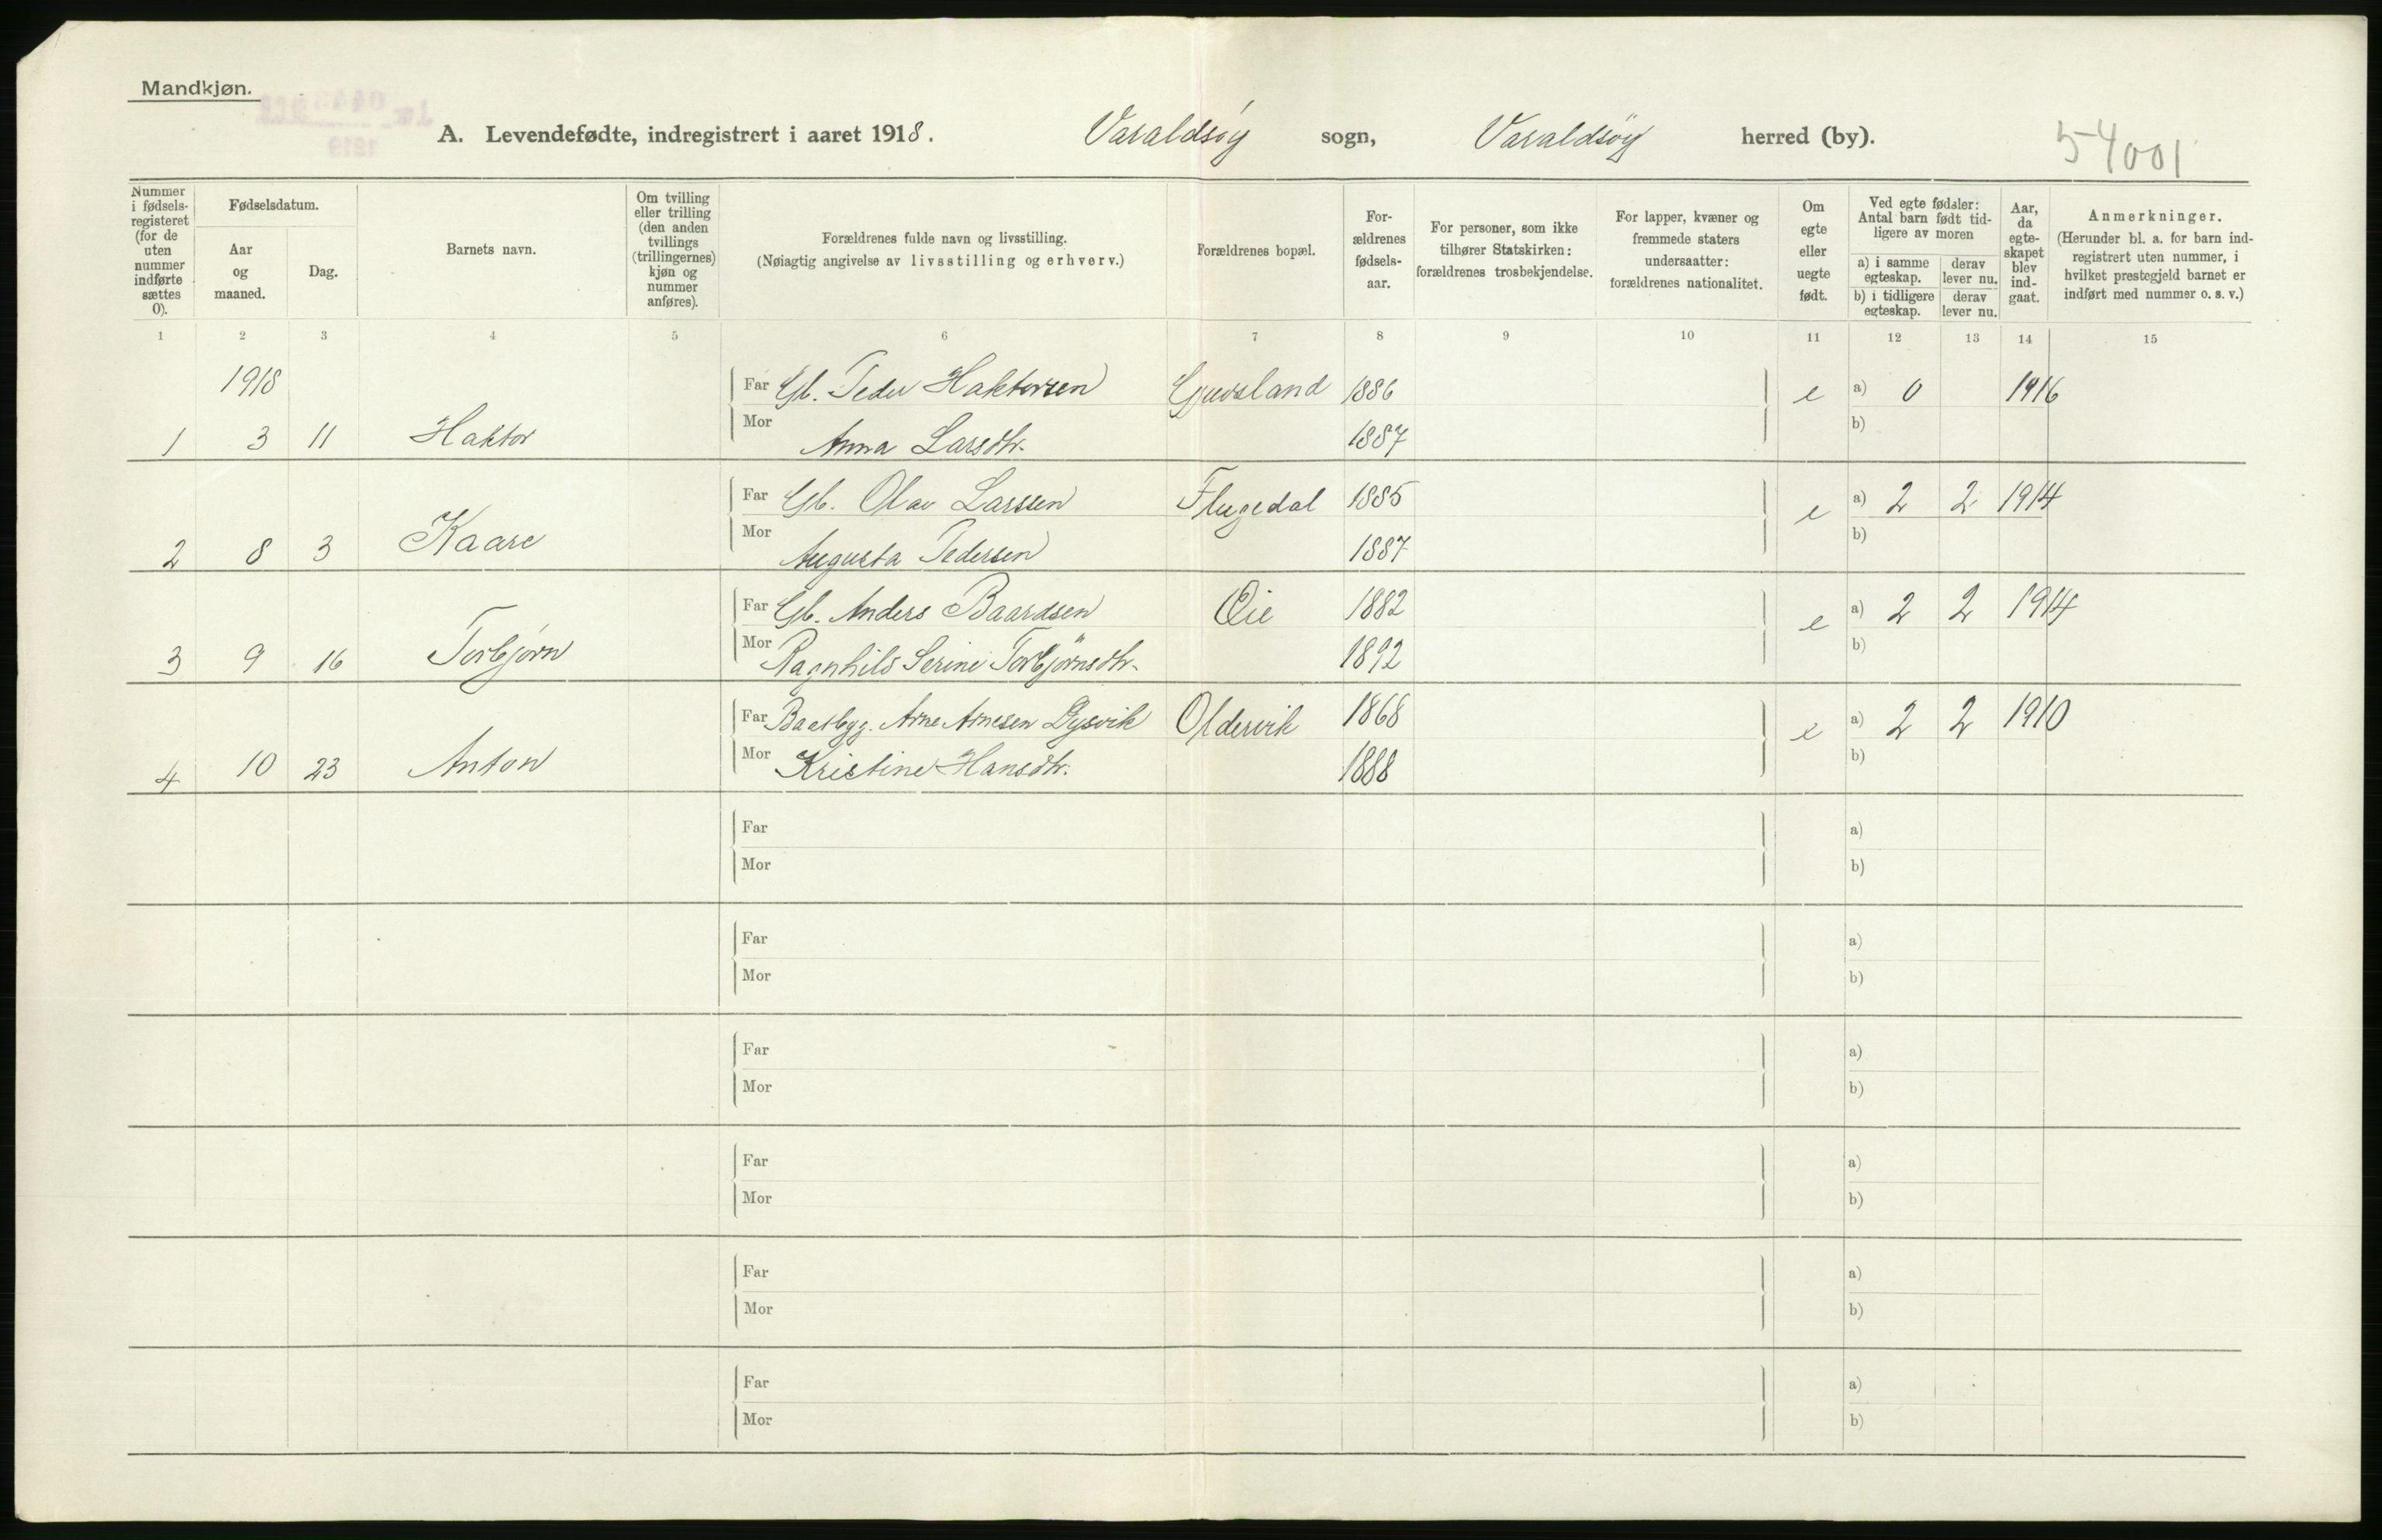 Mandkjøn.
A. Levendefødte, indregistrert i aaret 1918. Varaldsöy sogn, Varaldsöy herred (by). 54001
Nummer i fødselsregisteret (for de uten nummer indførte sættes 0).
Fødselsdatum.
Aar og maaned.
Dag.
Barnets navn.
Om tvilling eller trilling (den anden tvillings (trillingernes) kjøn og nummer anføres).
Forældrenes fulde navn og livsstilling.
(Nøiagtig angivelse av livsstilling og erhverv.)
Forældrenes bopæl.
Forældrenes fødselsaar.
For personer, som ikke tilhører Statskirken: forældrenes trosbekjendelse.
For lapper, kvæner og fremmede staters undersaatter: forældrenes nationalitet.
Om egte eller uegte født.
Ved egte fødsler: Antal barn født tidligere av moren
a) i samme egteskap.
derav lever nu.
b) i tidligere egteskap.
derav lever nu.
Aar, da egteskapet blev indgaat.
Anmerkninger.
(Herunder bl. a. for barn indregistrert uten nummer, i hvilket prestegjeld barnet er indført med nummer o. s. v.)
1 2 3 4 5 6 7 8 9 10 11 12 13 14 15
1918 Far Gb. Peder Haktorsen 1886 e a) 0 1916
1 3 11 Haktor Mor Anna Larsdtr. 1887 b)
Far Gb. Olav Larssen Flugedal 1885 e a) 2 2 1914
2 8 3 Kaare Mor Augusta Pedersen 1887 b)
Far Gb. Anders Baardsen Øie 1882 e a) 2 2 1914
3 9 16 Torbjørn Mor Ragnhild Serine Torbjørnsdtr. 1892 b)
Far Baatbygg. Arne Arnesen Dysvik Oldervik 1868 e a) 2 2 1910
4 10 23 Anton Mor Kristine Hansdtr. 1888 b)
Far a)
Mor b)
Far a)
Mor b)
Far a)
Mor b)
Far a)
Mor b)
Far a)
Mor b)
Far a)
Mor b)